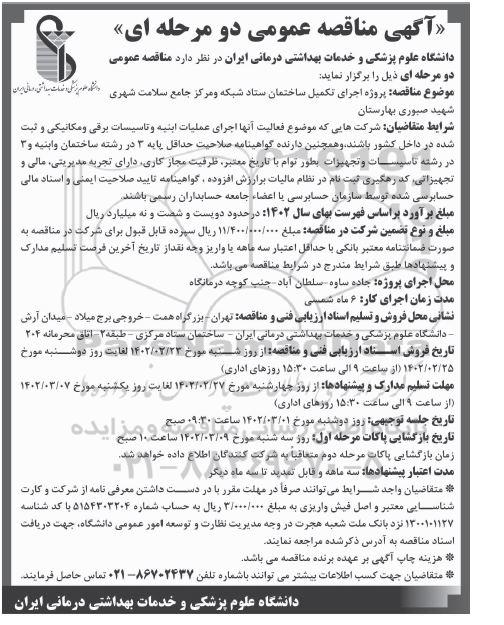 «آگهی مناقصه عمومی دو مرحله ای»
دانشگاه علوم پزشکی و خدمات بهداشتی درمانی ایران
دانشگاه علوم پزشکی و خدمات بهداشتی درمانی ایران در نظر دارد مناقصه عمومی
دو مرحله ای ذیل را برگزار نماید:
موضوع مناقصه: پروژه اجرای تکمیل ساختمان ستاد شبکه ومرکز جامع سلامت شهری
شهید صبوری بهارستان
شرایط متقاضیان: شرکت هایی که موضوع فعالیت آنها اجرای عملیات ابنیه وتاسیسات برقی ومکانیکی و ثبت
شده در داخل کشور باشند،وهمچنین دارنده گواهینامه صلاحیت حداقل پایه ۳ در رشته ساختمان وابنیه و۳
در رشته تاسیسات وتجهیزات بطور توام با تاریخ معتبر، ظرفیت مجاز کاری، دارای تجربه مدیریتی، مالی و
تجهیزاتی، کد رهگیری ثبت نام در نظام مالیات برارزش افزوده ، گواهینامه تایید صلاحیت ایمنی و اسناد مالی
حسابرسی شده توسط سازمان حسابرسی یا اعضاء جامعه حسابداران رسمی باشند.
مبلغ برآورد براساس فهرست بهای سال ۱۴۰۲: درحدود دویست و شصت و نه میلیارد ریال
مبلغ و نوع تضمین شرکت در مناقصه: مبلغ ۱۱/۴۰۰/۰۰۰/۰۰۰ ریال سپرده قابل قبول برای شرکت در مناقصه به
صورت ضمانتنامه معتبر بانکی با حداقل اعتبار سه ماهه یا واریز وجه نقداز تاریخ آخرین فرصت تسلیم مدارک
و پیشنهادها طبق شرایط مندرج در شرایط مناقصه می باشد.
محل اجرای پروژه: جاده ساوه-سلطان آباد-جنب کوچه درمانگاه
مدت زمان اجرای کار: ۶ ماه شمسی
نشانی محل فروش و تسلیم اسناد ارزیابی فنی و مناقصه: تهران-بزرگراه همت - خروجی برج میلاد - میدان آرش
- دانشگاه علوم پزشکی و خدمات بهداشتی درمانی ایران - ساختمان ستاد مرکزی - طبقه۲- اتاق محرمانه ۲۰۴
تاریخ فروش اسناد ارزیابی فنی و مناقصه: از روز شنبه مورخ ۱۴۰۲/۰۲/۲۳ لغایت روز دوشنبه مورخ
۱۴۰۲/۰۲/۲۵ (از ساعت ۹ الی ساعت ۱۵:۳۰ روزهای اداری)
مهلت تسلیم مدارک و پیشنهادها: از روز چهارشنبه مورخ ۱۴۰۲/۰۲/۲۷ لغایت روز یکشنبه مورخ ۱۴۰۲/۰۳/۰۷
(از ساعت ۹ الی ساعت ۱۵:۳۰ روزهای اداری)
تاریخ جلسه توجیهی: روز دوشنبه مورخ ۱۴۰۲/۰۳/۰۱ ساعت ۰۹:۳۰ صبح
تاریخ بازگشایی پاکات مرحله اول: روز سه شنبه مورخ ۱۴۰۲/۰۳/۰۹ ساعت ۱۰ صبح
زمان بازگشایی پاکات مرحله دوم متعاقباً به شرکت کنندگان اطلاع داده خواهد شد.
مدت اعتبار پیشنهادها: سه ماهه و قابل تمدید تا سه ماه دیگر
* متقاضیان واجد شرایط می‌توانند صرفاً در مهلت مقرر با در دست داشتن معرفی نامه از شرکت و کارت
شناسایی معتبر و اصل فیش واریزی به مبلغ ۳/۰۰۰/۰۰۰ ریال به حساب شماره ۵۱۵۴۳۰۳۲۰۴ با کد شناسه
۱۳۰۰۱۰۱۱۲۷ نزد بانک ملت شعبه هجرت در وجه مدیریت نظارت و توسعه امور عمومی دانشگاه، جهت دریافت
اسناد مناقصه به آدرس ذکرشده مراجعه نمایند.
* هزینه چاپ آگهی بر عهده برنده مناقصه می باشد.
* متقاضیان جهت کسب اطلاعات بیشتر می توانند باشماره تلفن ۸۶۷۰۲۴۳۷-۰۲۱ تماس حاصل فرمایند.
دانشگاه علوم پزشکی و خدمات بهداشتی درمانی ایران